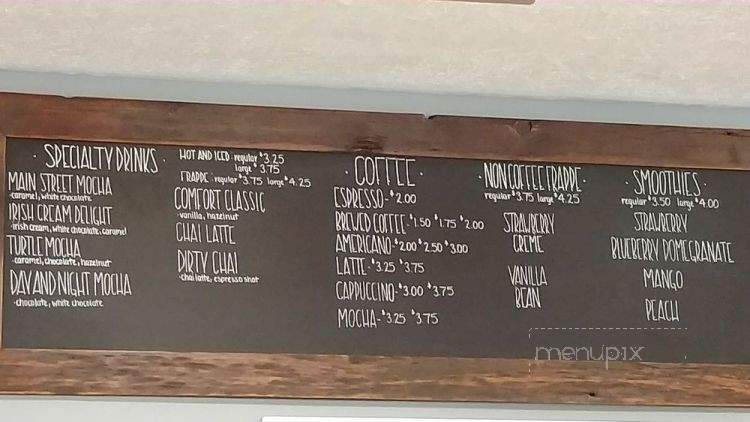 · SPECIALTY DRINKS ·
MAIN STREET MOCHA
-caramel, white chocolate
IRISH CREAM DELIGHT
-irish cream, white chocolate, caramel
TURTLE MOCHA
-caramel, chocolate, hazelnut
DAY AND NIGHT MOCHA
-chocolate, white chocolate
HOT AND ICED- regular $3.25
large $3.75
FRAPPE- regular $3.75 large $4.25
COMFORT CLASSIC
-vanilla, hazelnut
CHAI LATTE
DIRTY CHAI
-chai latte, espresso shot
· COFFEE ·
ESPRESSO-$2.00
BREWED COFFEE-$1.50 $1.75 $2.00
AMERICANO-$2.00 $2.50 $3.00
LATTE-$3.25 $3.75
CAPPUCCINO-$3.00 $3.75
MOCHA-$3.25 $3.75
· NON COFFEE FRAPPE ·
regular $3.75 large $4.25
STRAWBERRY
CREME
VANILLA
BEAN
· SMOOTHIES ·
regular $3.50 large $4.00
STRAWBERRY
BLUEBERRY POMEGRANATE
MANGO
PEACH
menupix